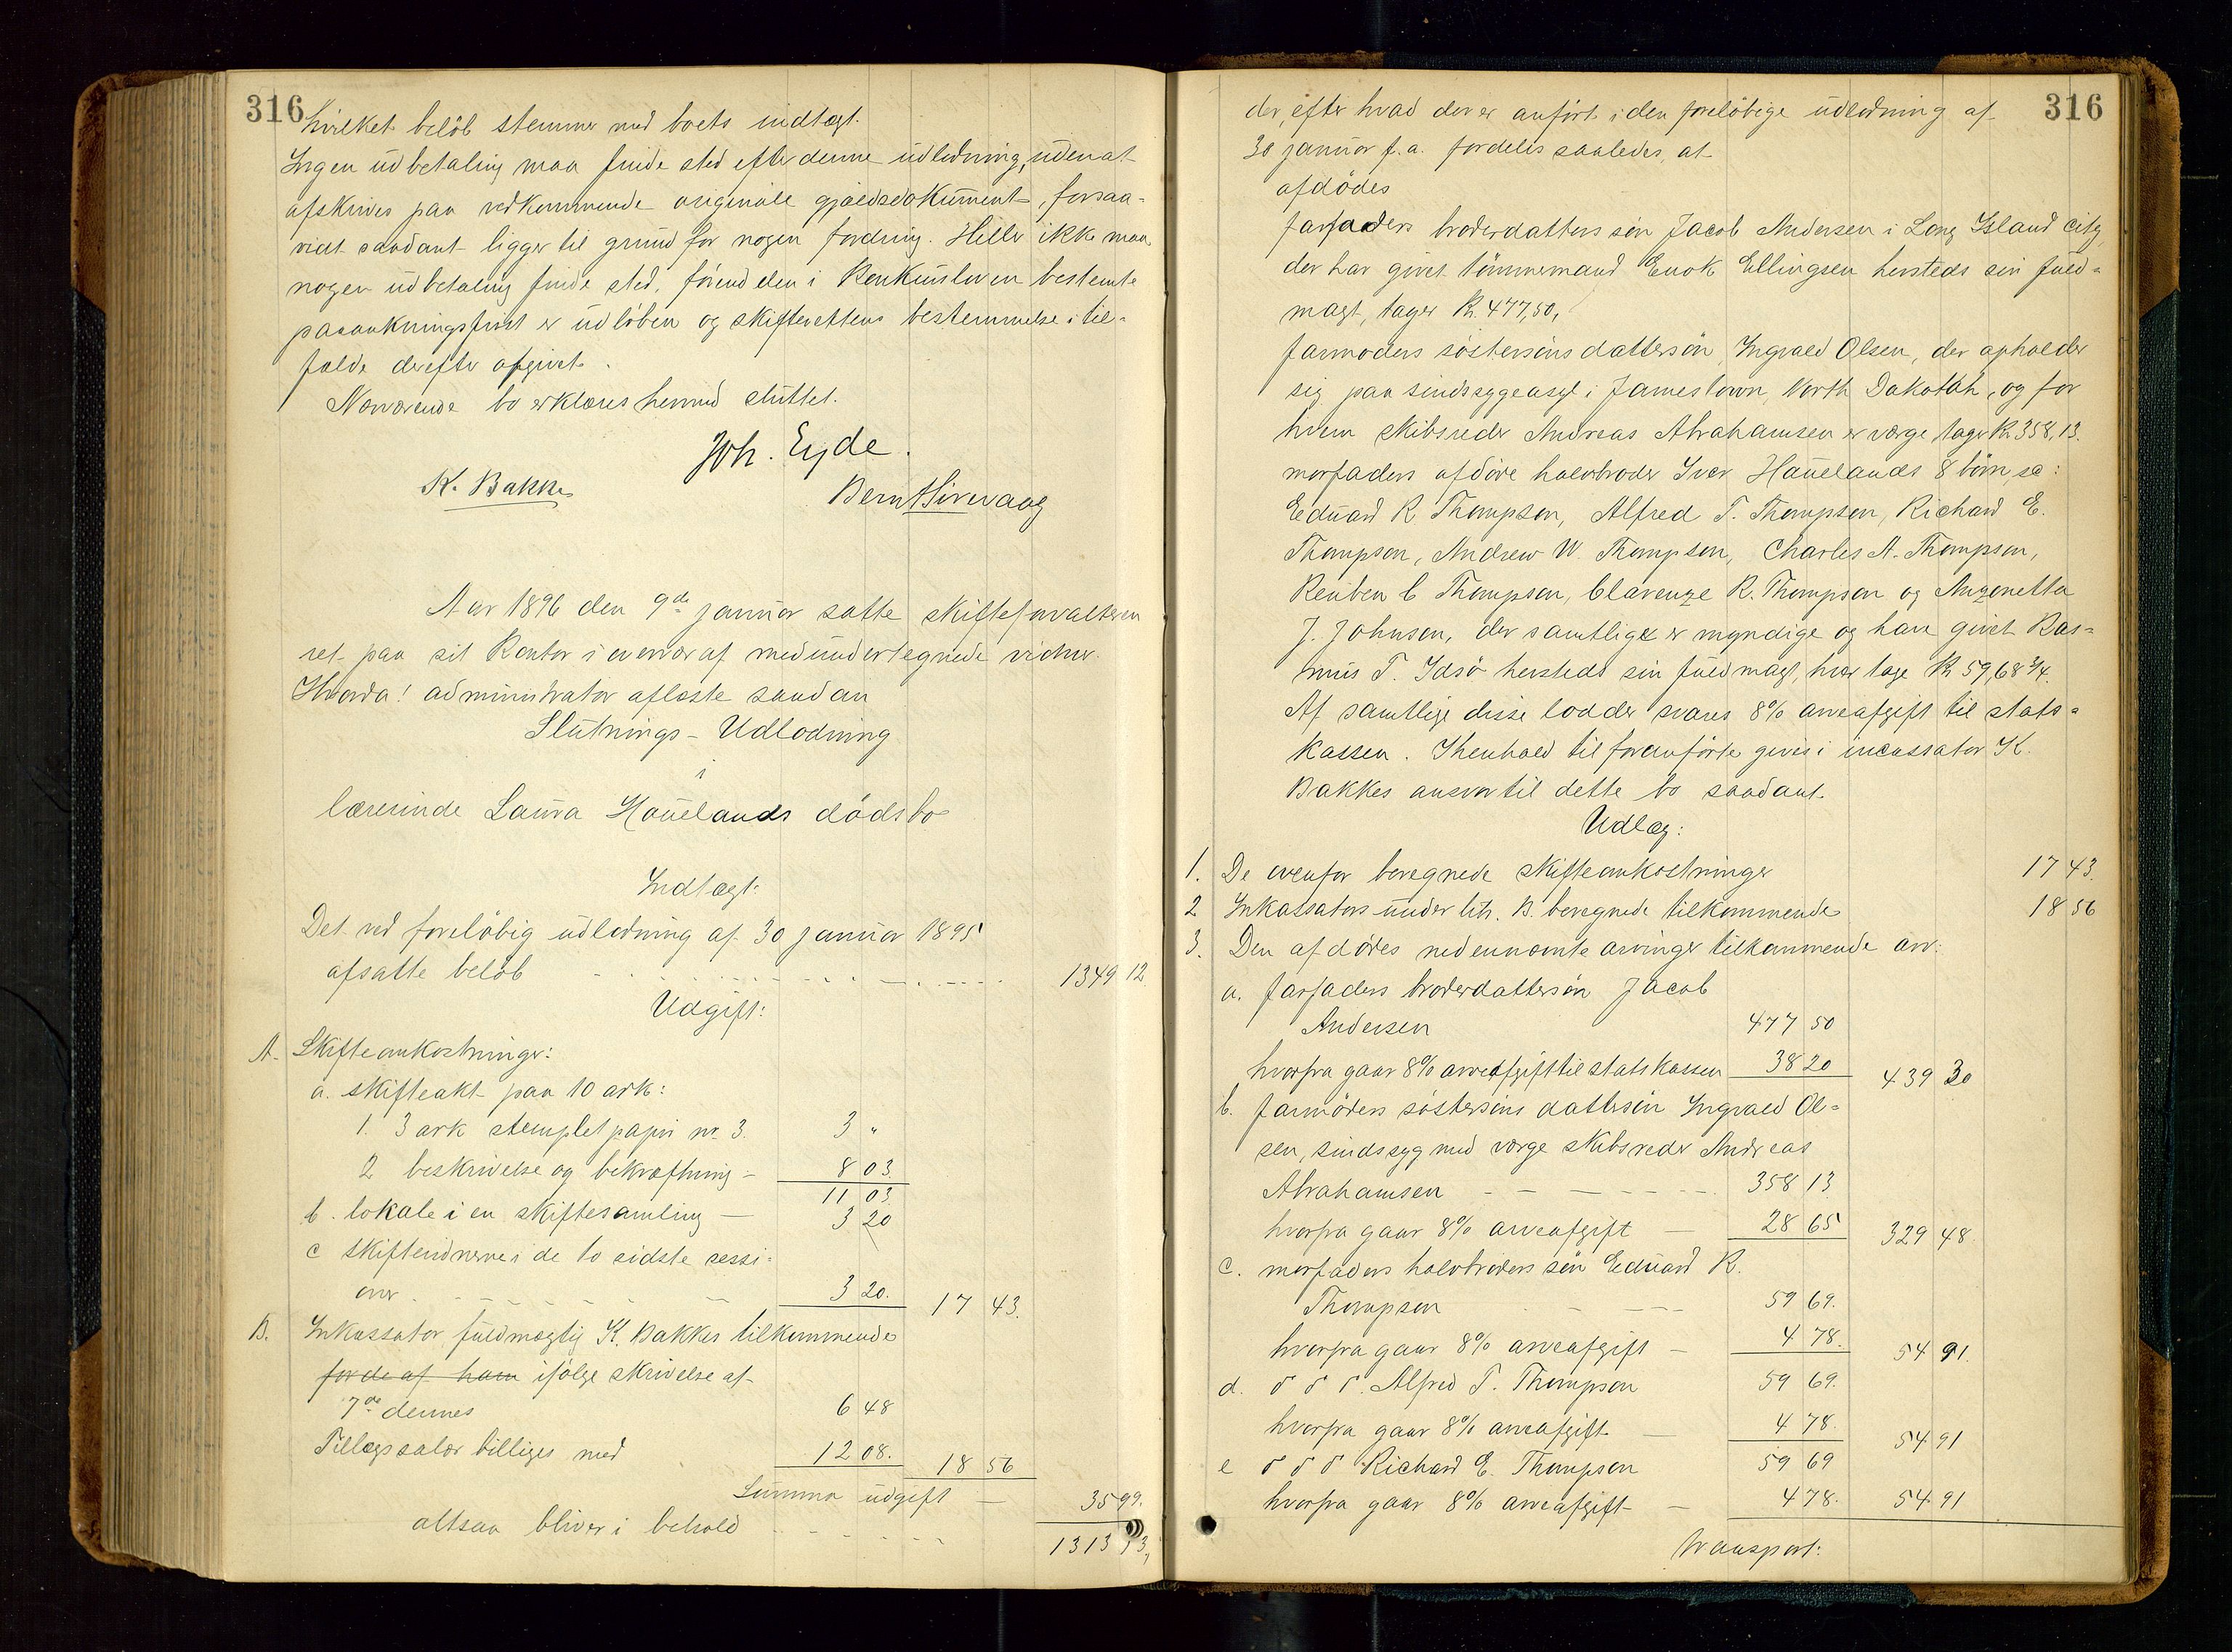 316
hvilket beløb stemmer med boets indtægt.
Ingen udbetaling maa finde sted efter denne udlodning, uden at
afskrives paa vedkommende originale gjældsdokument, forsaa-
vidt saadant ligger til grund for nogen fordring. Heller ikke maa
nogen udbetaling finde sted, førend den i Konkursloven bestemte
paaankningsfrist er udløben og skifterettens bestemmelse i til-
fælde derefter afgivet.
Nærværende bo erklæres hermed sluttet.
Joh. Eyde.
K. Bakke
Bernt Sirevaag
Aar 1896 den 9de januar satte skifteforvalteren
ret paa sit Kontor i overvær af medundertegnede vidner.
Hvorda! administrator aflæste saadan
Slutnings-Udlodning
i
lærerinde Laura Hauelands dødsbo
Indtægt:
Det ved foreløbig udlodning af 30 januar 1895
afsatte beløb 1349 12
Udgift:
A. Skifteomkostninger:
a. skifteakt paa 10 ark:
1. 3 ark stemplet papir nr 3. 3 "
2 beskrivelse og bekræftning - 8 03.
11 03
b. lokale i en skiftesamling — 3 20
c skiftevidnerne i de to sidste sessi-
oner 3 20. 17 43.
B. Inkassator fuldmægtig K. Bakkes tilkommende
for de af ham ifølge skrivelse af
7de dennes 6 48
Tillægssalær billiges med 12 08. 18 56
Summa udgift — 35 99.
altsaa bliver i behold 1313 13,
316
der, efter hvad der er anført i den foreløbige udlodning af
30 januar f.a. fordeles saaledes, at
afdødes
farfaders broderdatters søn Jacob Andersen i Long Island City,
der har givet tømmermand Enok Ellingsen hersteds sin fuld-
magt, tager Kr. 477,50,
farmoders søstersøns dattersøn Ingvald Olsen, der opholder
sig paa sindssygeasyl i Jamestown, North Dakotah, og for
hvem skibsreder Andreas Abrahamsen er værge, tager Kr. 358,13.
morfaders afdøde halvbroder Iver Hauelands 8 børn, sc:
Eduard R Thompson, Alfred T. Thompson, Richard E.
Thompson, Andrew W. Thompson, Charles A. Thompson,
Reuben C Thompson, Clarenze R. Thompson og Angenetta
J. Johnson, der samtlige er myndige og have givet Ras-
mus T. Idsø hersteds sin fuldmagt, hver tage Kr 59,68 3/4.
Af samtlige disse lodder svares 8% arveafgift til stats-
kassen. I henhold til foranførte gives i incassator K.
Bakkes ansvar til dette bo saadant
Udlæg:
1. De ovenfor beregnede skifteomkostninger 17 43.
2 Inkassators under litr. B. beregnede tilkommende 18 56
3. Den afdødes nedennævnte arvinger tilkommende arv:
a. farfaders broderdattersøn Jacob
Andersen 477 50
hvorfra gaar 8% arveafgift til statskassen 38 20 439 30
b. farmoders søstersøns dattersøn Ingvald Ol-
sen, sindssyg med værge skibsreder Andreas
Abrahamsen 358 13
hvorfra gaar 8% arveafgift — 28 65 329 48
c. morfaders halvbroders søn Eduard R.
Thompson 59 69.
hvorfra gaar 8% arveafgift — 4 78. 54 91.
d. do do do. Alfred T. Thompson 59 69.
hvorfra gaar 8% arveafgift — 4 78. 54 91
e do do do Richard E. Thompson 59 69
hvorfra gaar 8% arveafgift — 4 78. 54 91
transport: